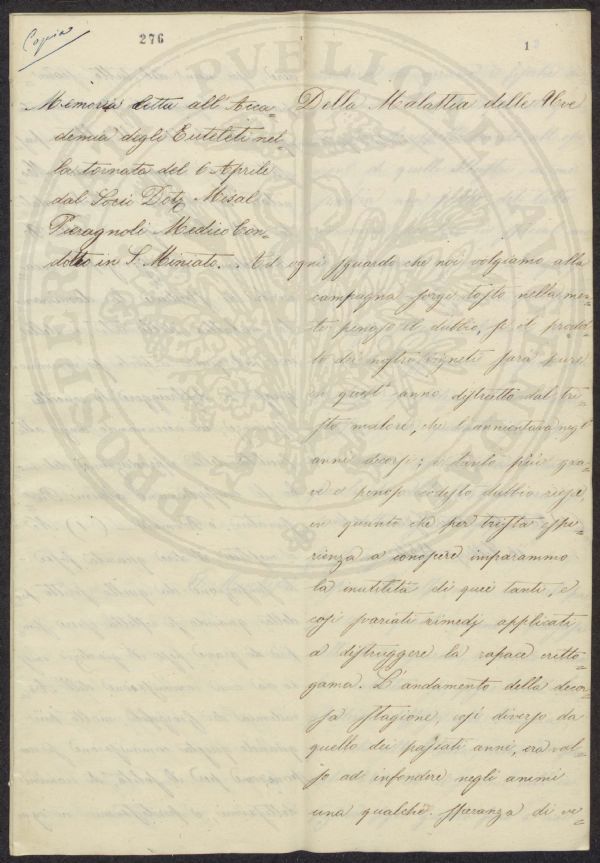 Copia
276
1
Memoria letta all'Acca=
demia degli Euteleti nel=
la tornata del 6 Aprile
dal Socio Dott. Misal
Pieragnoli Medico Con=
dotto in S. Miniato.
Della Malattia delle Uve
Ad ogni sguardo che noi volgiamo alla
campagna sorge tosto nella men=
te penoso il dubbio, se il prodot=
to dei nostri vigneti sarà pure
in quest'anno distrutto dal tri=
sto malore, che l'annientava negl'
anni decorsi; e tanto più gra=
ve e penoso codesto dubbio riesce
in quanto che per trista espe=
rienza a conoscere imparammo
la inutilità di quei tanti, e
così svariati rimedj applicati
a distruggere la rapace critto=
gama. L'andamento della decor=
sa stagione, così diverso da
quello dei passati anni, era val=
so ad infondere negli animi
una qualche speranza di ve=
PROSPERI
PVBLICA